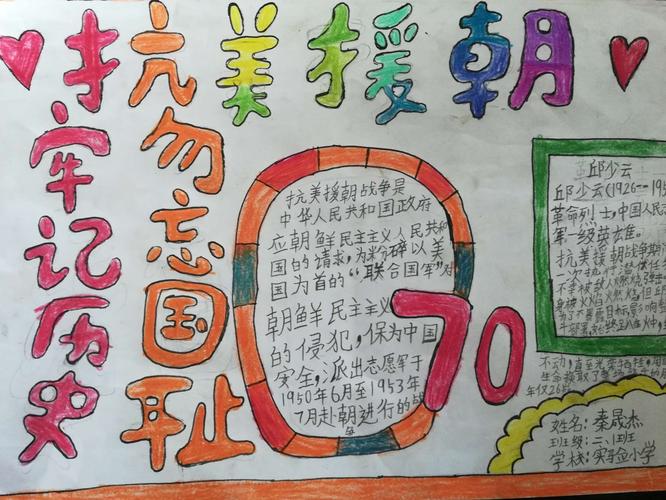 抗美援朝
牢记历史
勿忘国耻
抗美援朝战争是
中华人民共和国政府
应朝鲜民主主义人民共和
国的请求,为粉碎以美
国为首的“联合国军”对
朝鲜民主主义
的侵犯,保为中国
安全,派出志愿军于
1950年6月至1953年
7月赴朝进行的战
争
70
邱少云
邱少云(1926--19
革命烈士,中国人民
军一级英雄。
抗美援朝战争期
一次执行潜伏任
不幸被敌人燃烧弹击
身被火焰燃烧,但
为了不暴露目标,影响
不动,直至光荣牺牲,用
年仅26岁
姓名:秦晟杰
班级:二、1班
学校:实验小学